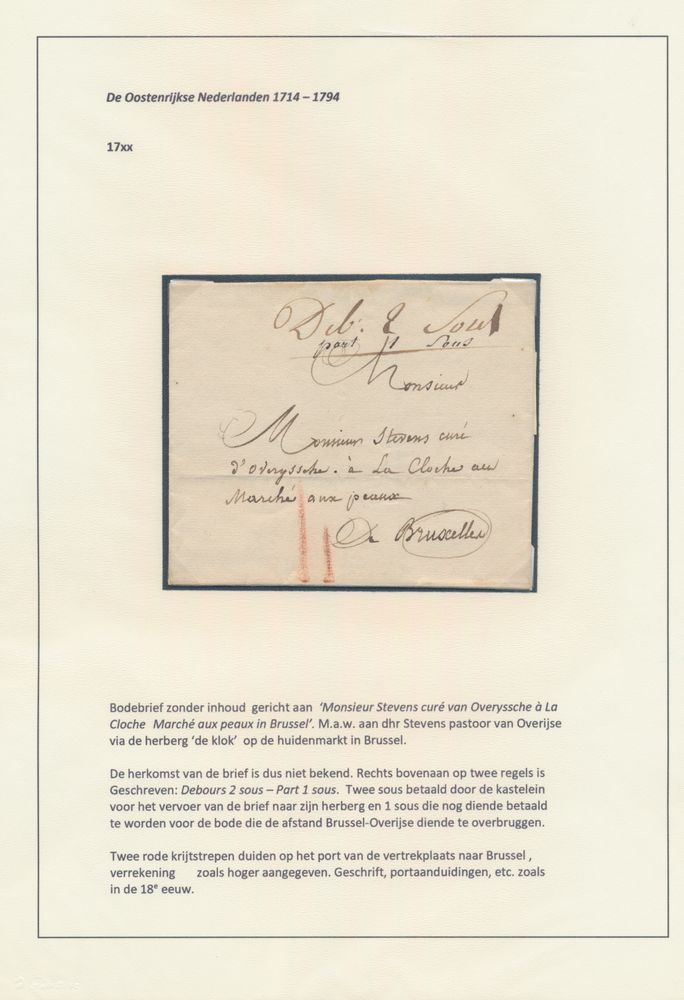 De Oostenrijkse Nederlanden 1714 – 1794
17xx
Deb. 2 Sous
port 1 Sous
Monsieur
Monsieur Stevens curé
d'Overyssche . à La Cloche au
Marché aux peaux
De Bruxelles
Bodebrief zonder inhoud gericht aan ‘Monsieur Stevens curé van Overyssche à La
Cloche Marché aux peaux in Brussel’. M.a.w. aan dhr Stevens pastoor van Overijse
via de herberg ‘de klok’ op de huidenmarkt in Brussel.
De herkomst van de brief is dus niet bekend. Rechts bovenaan op twee regels is
Geschreven: Debours 2 sous – Part 1 sous. Twee sous betaald door de kastelein
voor het vervoer van de brief naar zijn herberg en 1 sous die nog diende betaald
te worden voor de bode die de afstand Brussel-Overijse diende te overbruggen.
Twee rode krijtstrepen duiden op het port van de vertrekplaats naar Brussel ,
verrekening zoals hoger aangegeven. Geschrift, portaanduidingen, etc. zoals
in de 18e eeuw.